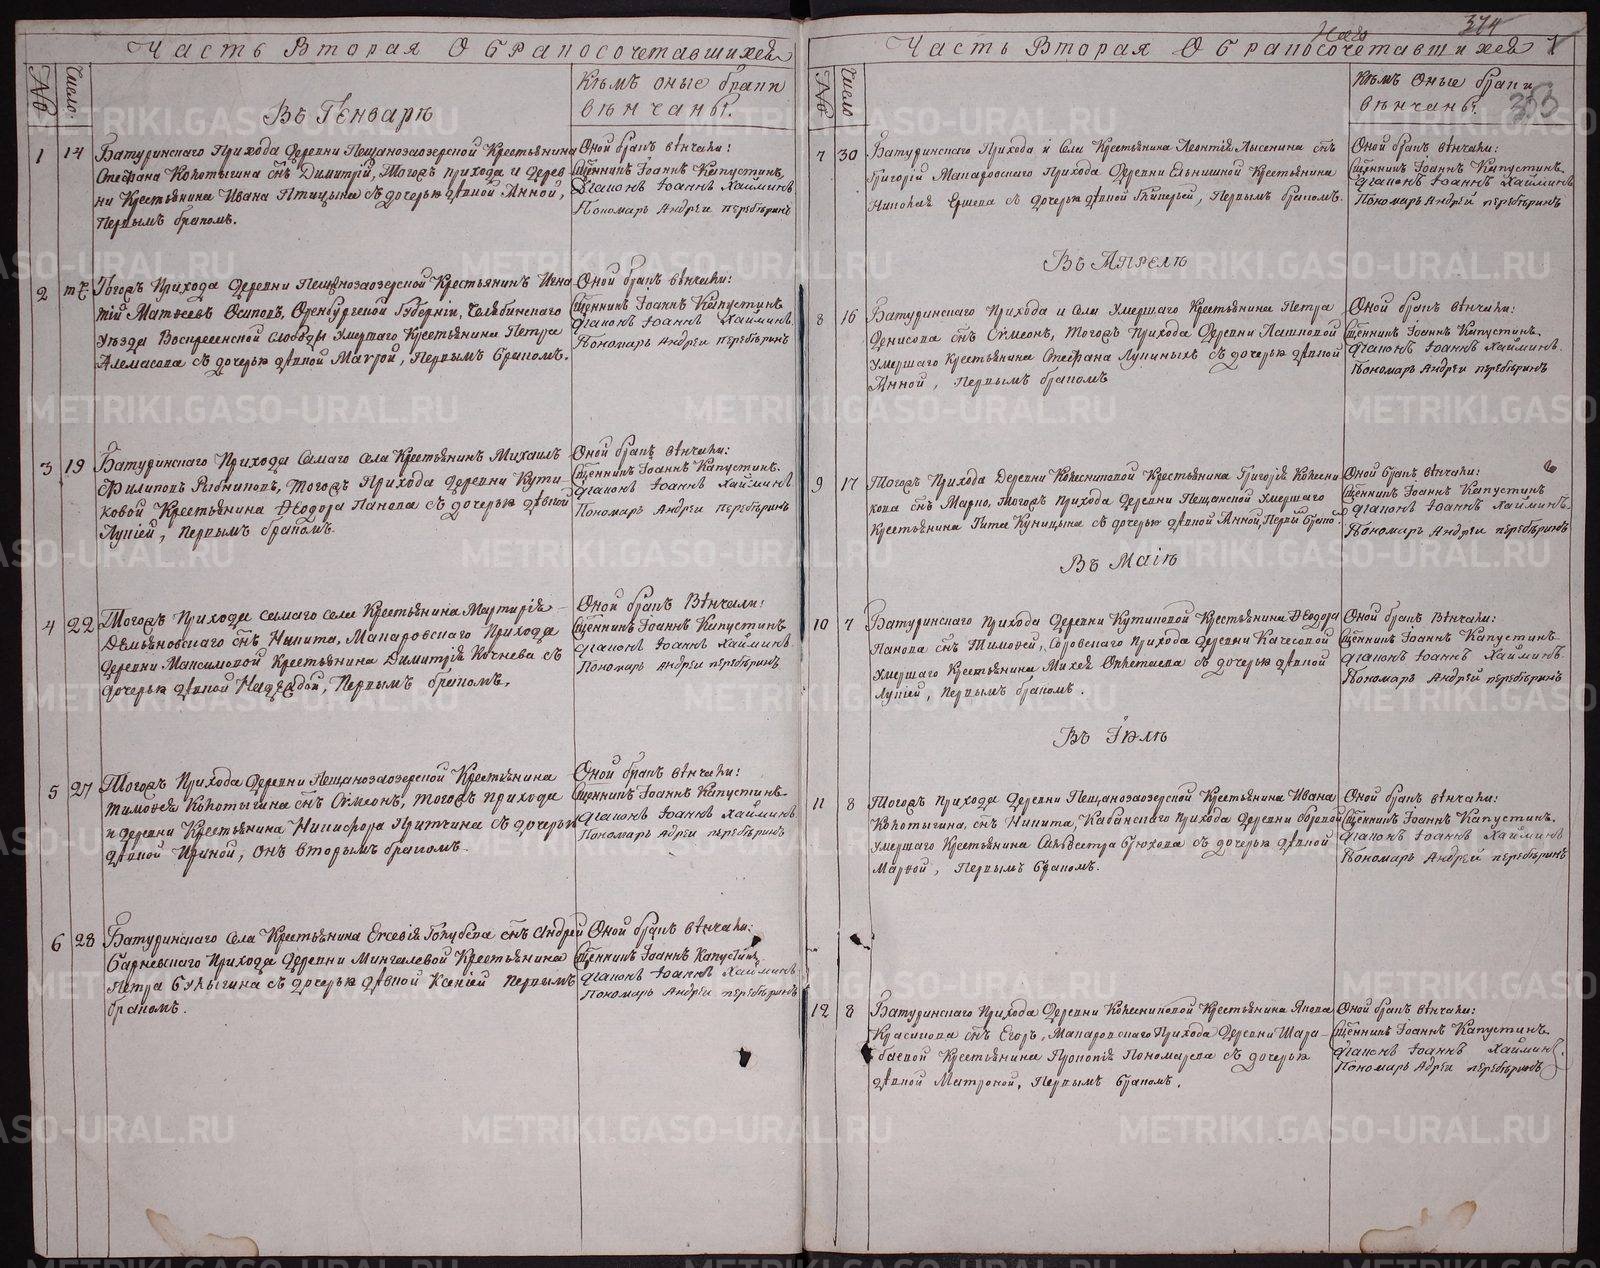 Часть Вторая О Бракосочетавшихся
№
Число
Въ Генварѣ
Кѣмъ оные браки
вѣнчаны.
1
14
Батуринскаго Прихода Деревни Пещанозаозерской Крестьянина
Стефана Колотыгина сн҃ъ Димитрій, Тогожъ прихода и дерев
ни Крестьянина Ивана Птицына съ дочерью дѣвкой Анной,
Первымъ бракомъ.
Оной бракъ вѣнчали:
Сщенникъ Іоаннъ Капустинъ,
Діаконъ Іоаннъ Хайминъ
Пономарь Андреи
2
Тогожъ Прихода Деревни Пещанозаозерской Крестьянинъ Игна
тій Матвѣевъ Осиповъ, Оренбургской Губерніи, Челябинскаго
Уѣзда Воспресенской слободы Умершаго Крестьянина Петра
Алемасова съ дочерью дѣвкой Маврой, Первымъ бракомъ.
Оной бракъ вѣнчали:
Сщенникъ Іоаннъ Капустинъ
Діаконъ Іоаннъ Хайминъ
Пономарь Андреи
3
19
Батуринскаго Прихода Самаго села Крестьянинъ Михаилъ
Филиповъ Рыбниковъ, Тогожъ Прихода Деревни Кути
ковой Крестьянина Ѳеодора Панова съ дочерью дѣвкой
Лукіей, Первымъ бракомъ.
Оной бракъ вѣнчали:
Сщенникъ Іоаннъ Капустинъ.
Діаконъ Іоаннъ Хайминъ
Пономарь Андреи
4
22
Тогожъ Прихода самаго села Крестьянина Мартирія
Демьяновскаго сн҃ъ Никита, Макаровскаго Прихода
Деревни Максимовой Крестьянина Димитрія Кочнева съ
дочерью дѣвкой Надеждой, Первымъ бракомъ.
Оной бракъ Вѣнчали:
Сщенникъ Іоаннъ Капустинъ
Діаконъ Іоаннъ Хайминъ
Пономарь Андреи
5
27
Тогожъ Прихода Деревни Пещанозаозерской Крестьянина
Тимоѳея Колотыгина сн҃ъ Сѵмеонъ, Тогожъ прихода
и деревни Крестьянина Никифора Притчина съ дочерью
дѣвкой Ириной, онъ вторымъ бракомъ.
Оной бракъ вѣнчали:
Сщенникъ Іоаннъ Капустинъ
Діаконъ Іоаннъ Хайминъ
Пономарь Адреи
6
28
Батуринскаго Села Крестьянина Евсевія Голубева сн҃ъ Андрей
Барневскаго Прихода Деревни Мингалевой Крестьянина
Петра Булыгина съ дочерью дѣвкой Ксеніей Первымъ
бракомъ.
Оной бракъ вѣнчали:
Сщенникъ Іоаннъ Капустинъ
Діаконъ Іоаннъ Хайминъ
Пономарь Андреи
374
Часть Вторая О Бракосочетавшихся
№
Число
Кѣмъ оные браки
вѣнчаны.
353
7
30
Батуринскаго Прихода и Села Крестьянина Леонтія Лысенина сн҃ъ
Григорій Макаровскаго Прихода Деревни Ельнишной Крестьянина
Ершева съ дочерью дѣвкой Гликерьей, Первымъ бракомъ.
Оной бракъ вѣнчали:
Сщенникъ Іоаннъ Капустинъ.
Діаконъ Іоаннъ Хайминъ
Пономарь Андреи
Въ Апрелѣ
8
16
Батуринскаго Прихода и Села Умершаго Крестьянина Петра
Денисова сн҃ъ Сѵмеонъ, Тогожъ Прихода Деревни
Умершаго Крестьянина Стефана Лупиныхъ съ дочерью дѣвкой
Анной, Первымъ бракомъ
Оной бракъ вѣнчали:
Сщенникъ Іоаннъ Капустинъ.
Діаконъ Іоаннъ Хайминъ.
Пономарь Андреи
9
17
Тогожъ Прихода Деревни Крестьянина Григорія Колесни
кова сн҃ъ Марко, Тогожъ прихода Деревни Пещанской Умершаго
Крестьянина Тита Куницына съ дочерью дѣвкой Анной,
Оной бракъ вѣнчали:
Сщенникъ Іоаннъ Капустинъ
Діаконъ Іоаннъ Хайминъ.
Пономарь Андреи
Въ Маіѣ
10
7
Батуринскаго прихода Деревни Кутиковой Крестьянина Ѳеодора
Панова сн҃ъ Тимоѳей, Соровскаго прихода Деревни Качесовой
Умершаго Крестьянина Михея съ дочерью дѣвкой
Лукіей, Первымъ бракомъ.
Оной бракъ Вѣнчали:
Сщенникъ Іоаннъ Капустинъ
Діаконъ Іоаннъ Хайминъ.
Пономарь Андрей
Въ Іюлѣ
11
8
Тогожъ прихода Деревни Пещанозаозерской Крестьянина Ивана
Колотыгина, сн҃ъ Никита, Кабанскаго прихода Деревни
умершаго Крестьянина Сильвестра Брюхова съ дочерью дѣвкой
Марѳой, Первымъ бракомъ.
Оной бракъ вѣнчали:
Сщенникъ Іоаннъ Капустинъ.
Діаконъ Іоаннъ Хайминъ
Пономарь Андрей
12
8
Батуринскаго Прихода Деревни Колесниковой Крестьянина Якова
Красикова сн҃ъ Егоръ, Макаровскаго Прихода Деревни Шара-
баевой Крестьянина Прокопія Пономарева съ дочерью
дѣвкой Матроной, Первымъ бракомъ.
Оной бракъ вѣнчали:
Сщенникъ Іоаннъ Капустинъ.
Діаконъ Іоаннъ Хайминъ.
Пономарь Адреи
METRIKI.GASO-URAL.RU